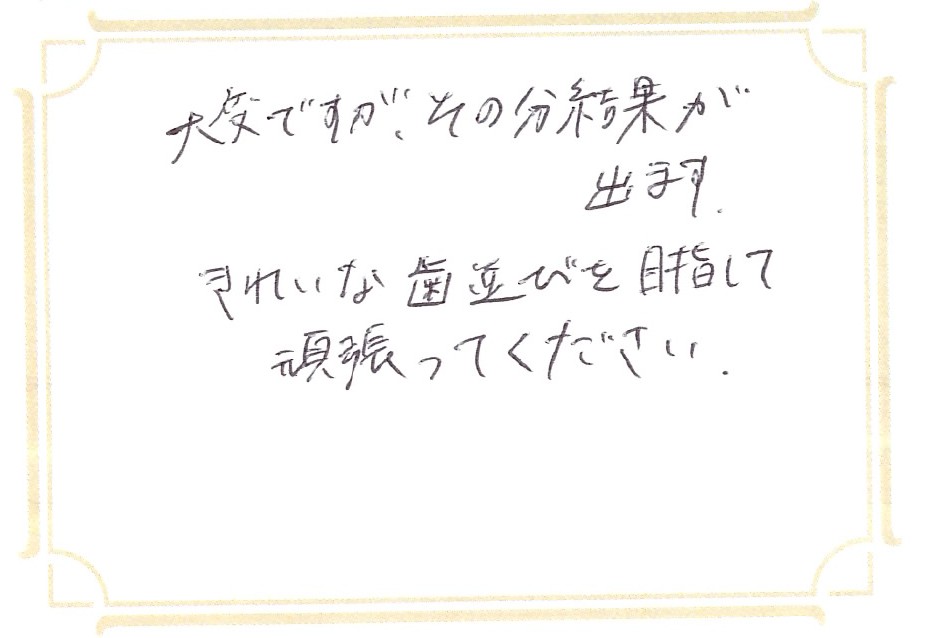 大変ですが、その分結果が
出ます.
きれいな歯並びを目指して
頑張ってください.